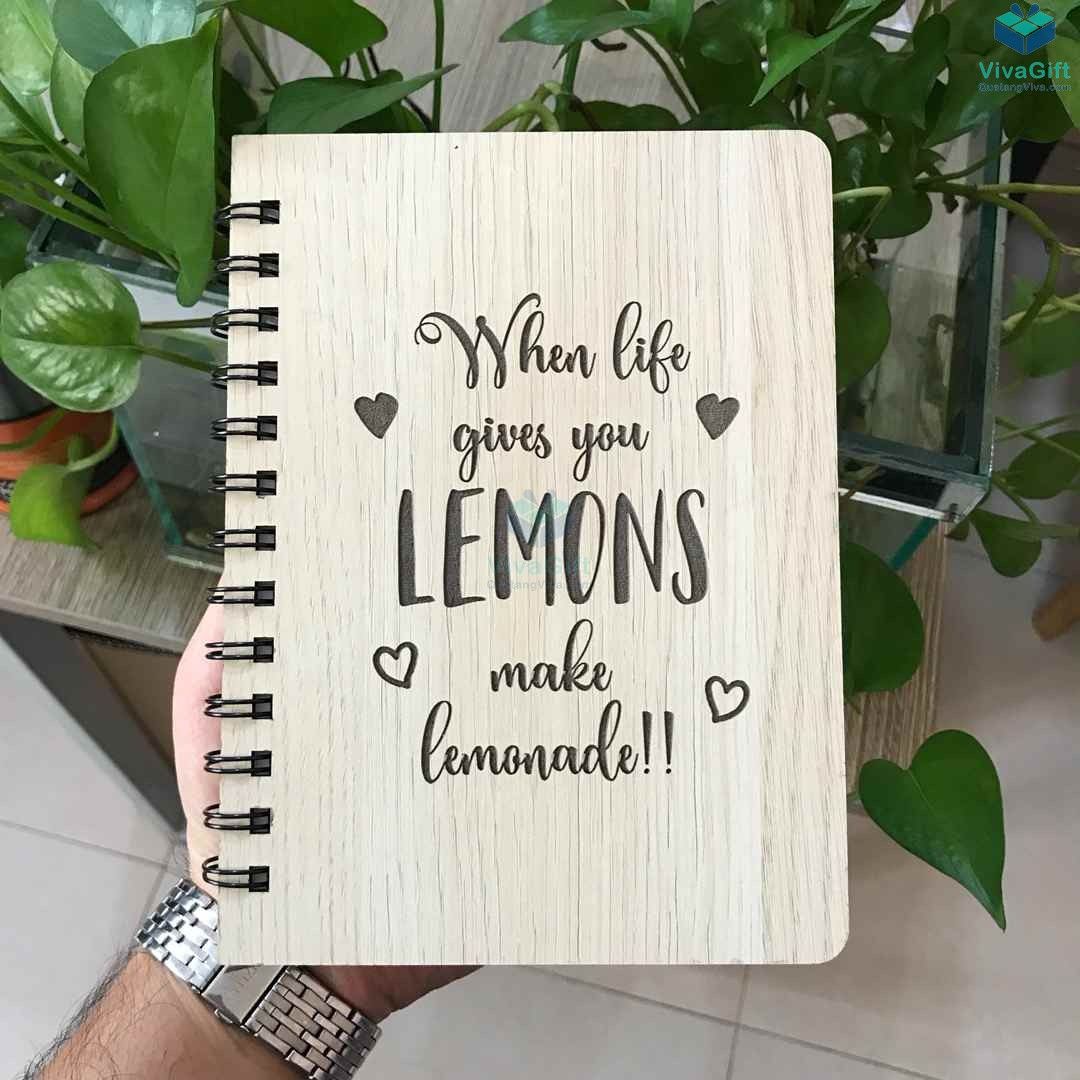 VivaGift
QuatangViva.com
When life
gives you
LEMONS
VivaGift
QuatangViva.com
make
lemonade!!